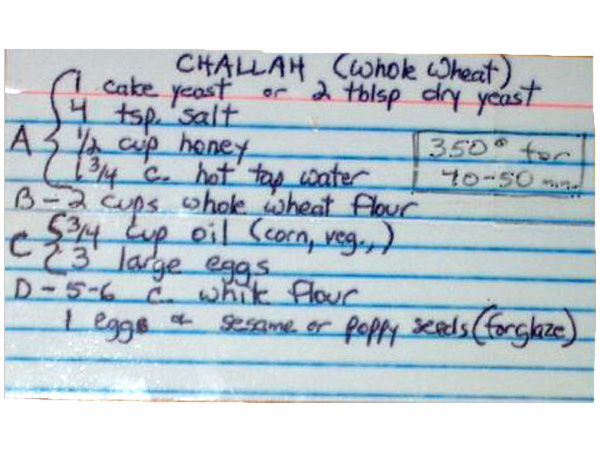 CHALLAH (Whole Wheat)
1 cake yeast or 2 tblsp dry yeast
4 tsp. salt
A 1/2 cup honey
1 3/4 c. hot tap water
350° for
40-50 min.
B - 2 cups whole wheat flour
C 3/4 cup oil (corn, veg.,)
3 large eggs
D - 5-6 c. white flour
1 egg sesame or poppy seeds (for glaze)